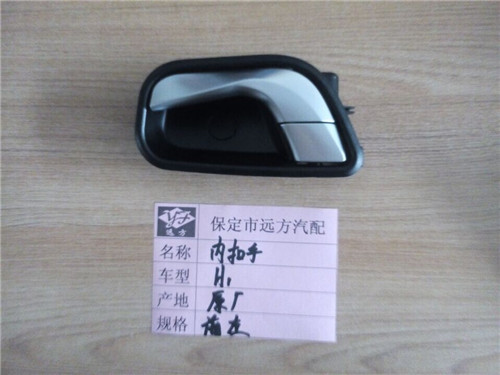 YF
远方
保定市远方汽配
名称 内扣手
车型 H1
产地 原厂
规格 前左